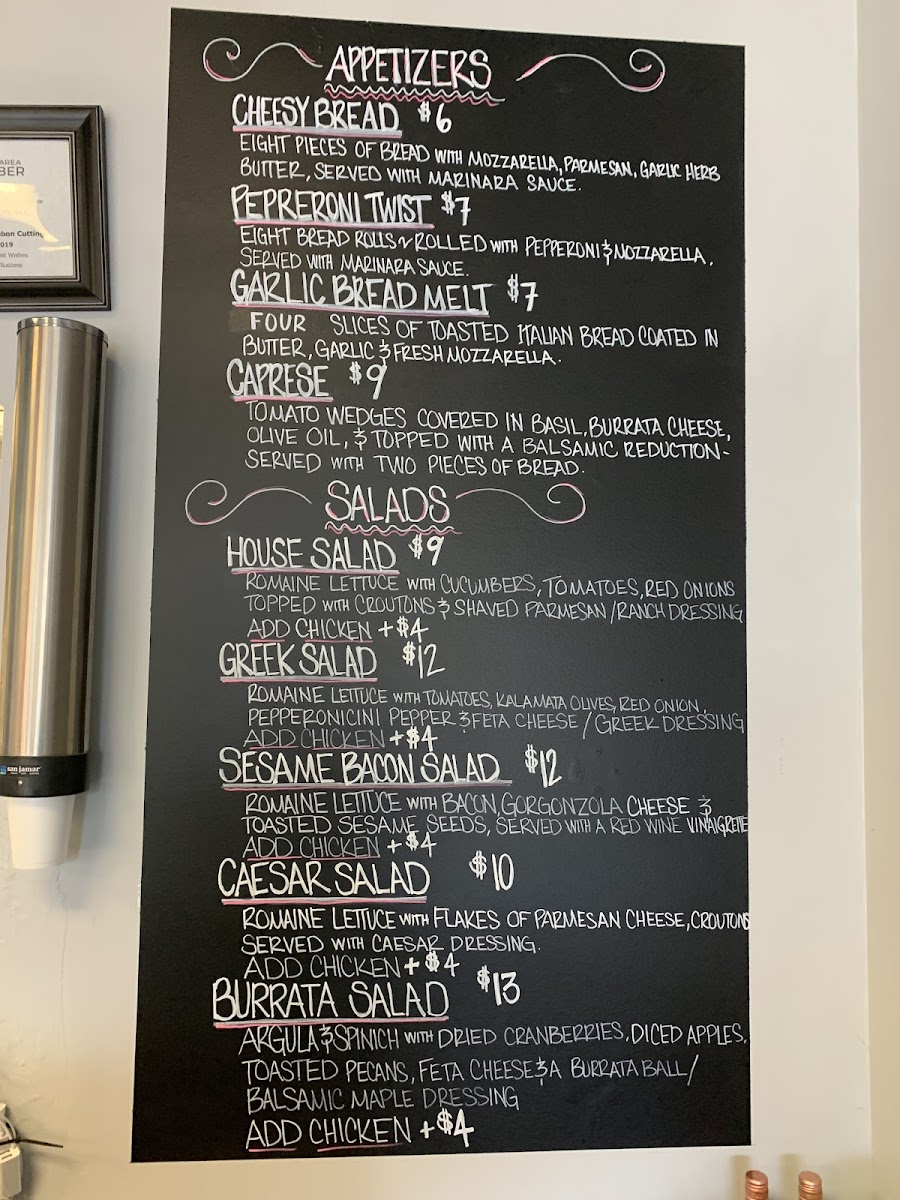 APPETIZERS
CHEESY BREAD $6
EIGHT PIECES OF BREAD WITH MOZZARELLA, PARMESAN, GARLIC HERB
BUTTER, SERVED WITH MARINARA SAUCE.
PEPRERONI TWIST $7
EIGHT BREAD ROLLS ~ ROLLED WITH PEPPERONI & MOZZARELLA.
SERVED WITH MARINARA SAUCE.
GARLIC BREAD MELT $7
FOUR SLICES OF TOASTED ITALIAN BREAD COATED IN
BUTTER, GARLIC & FRESH MOZZARELLA.
CAPRESE $9
TOMATO WEDGES COVERED IN BASIL, BURRATA CHEESE,
OLIVE OIL, & TOPPED WITH A BALSAMIC REDUCTION-
SERVED WITH TWO PIECES OF BREAD.
SALADS
HOUSE SALAD $9
ROMAINE LETTUCE WITH CUCUMBERS, TOMATOES, RED ONIONS
TOPPED WITH CROUTONS & SHAVED PARMESAN / RANCH DRESSING
ADD CHICKEN +$4
GREEK SALAD $12
ROMAINE LETTUCE WITH TOMATOES, KALAMATA OLIVES, RED ONION,
PEPPERONICINI PEPPER & FETA CHEESE / GREEK DRESSING
ADD CHICKEN +$4
SESAME BACON SALAD $12
ROMAINE LETTUCE WITH BACON, GORGONZOLA CHEESE &
TOASTED SESAME SEEDS, SERVED WITH A RED WINE VINAIGRETTE
ADD CHICKEN +$4
CAESAR SALAD $10
ROMAINE LETTUCE WITH FLAKES OF PARMESAN CHEESE, CROUTONS
SERVED WITH CAESAR DRESSING.
ADD CHICKEN +$4
BURRATA SALAD $13
ARGULA & SPINICH WITH DRIED CRANBERRIES, DICED APPLES,
TOASTED PECANS, FETA CHEESE & A BURRATA BALL /
BALSAMIC MAPLE DRESSING
ADD CHICKEN +$4
AREA
BER
bon Cutting
2019
st Wishes
Success
san jamar